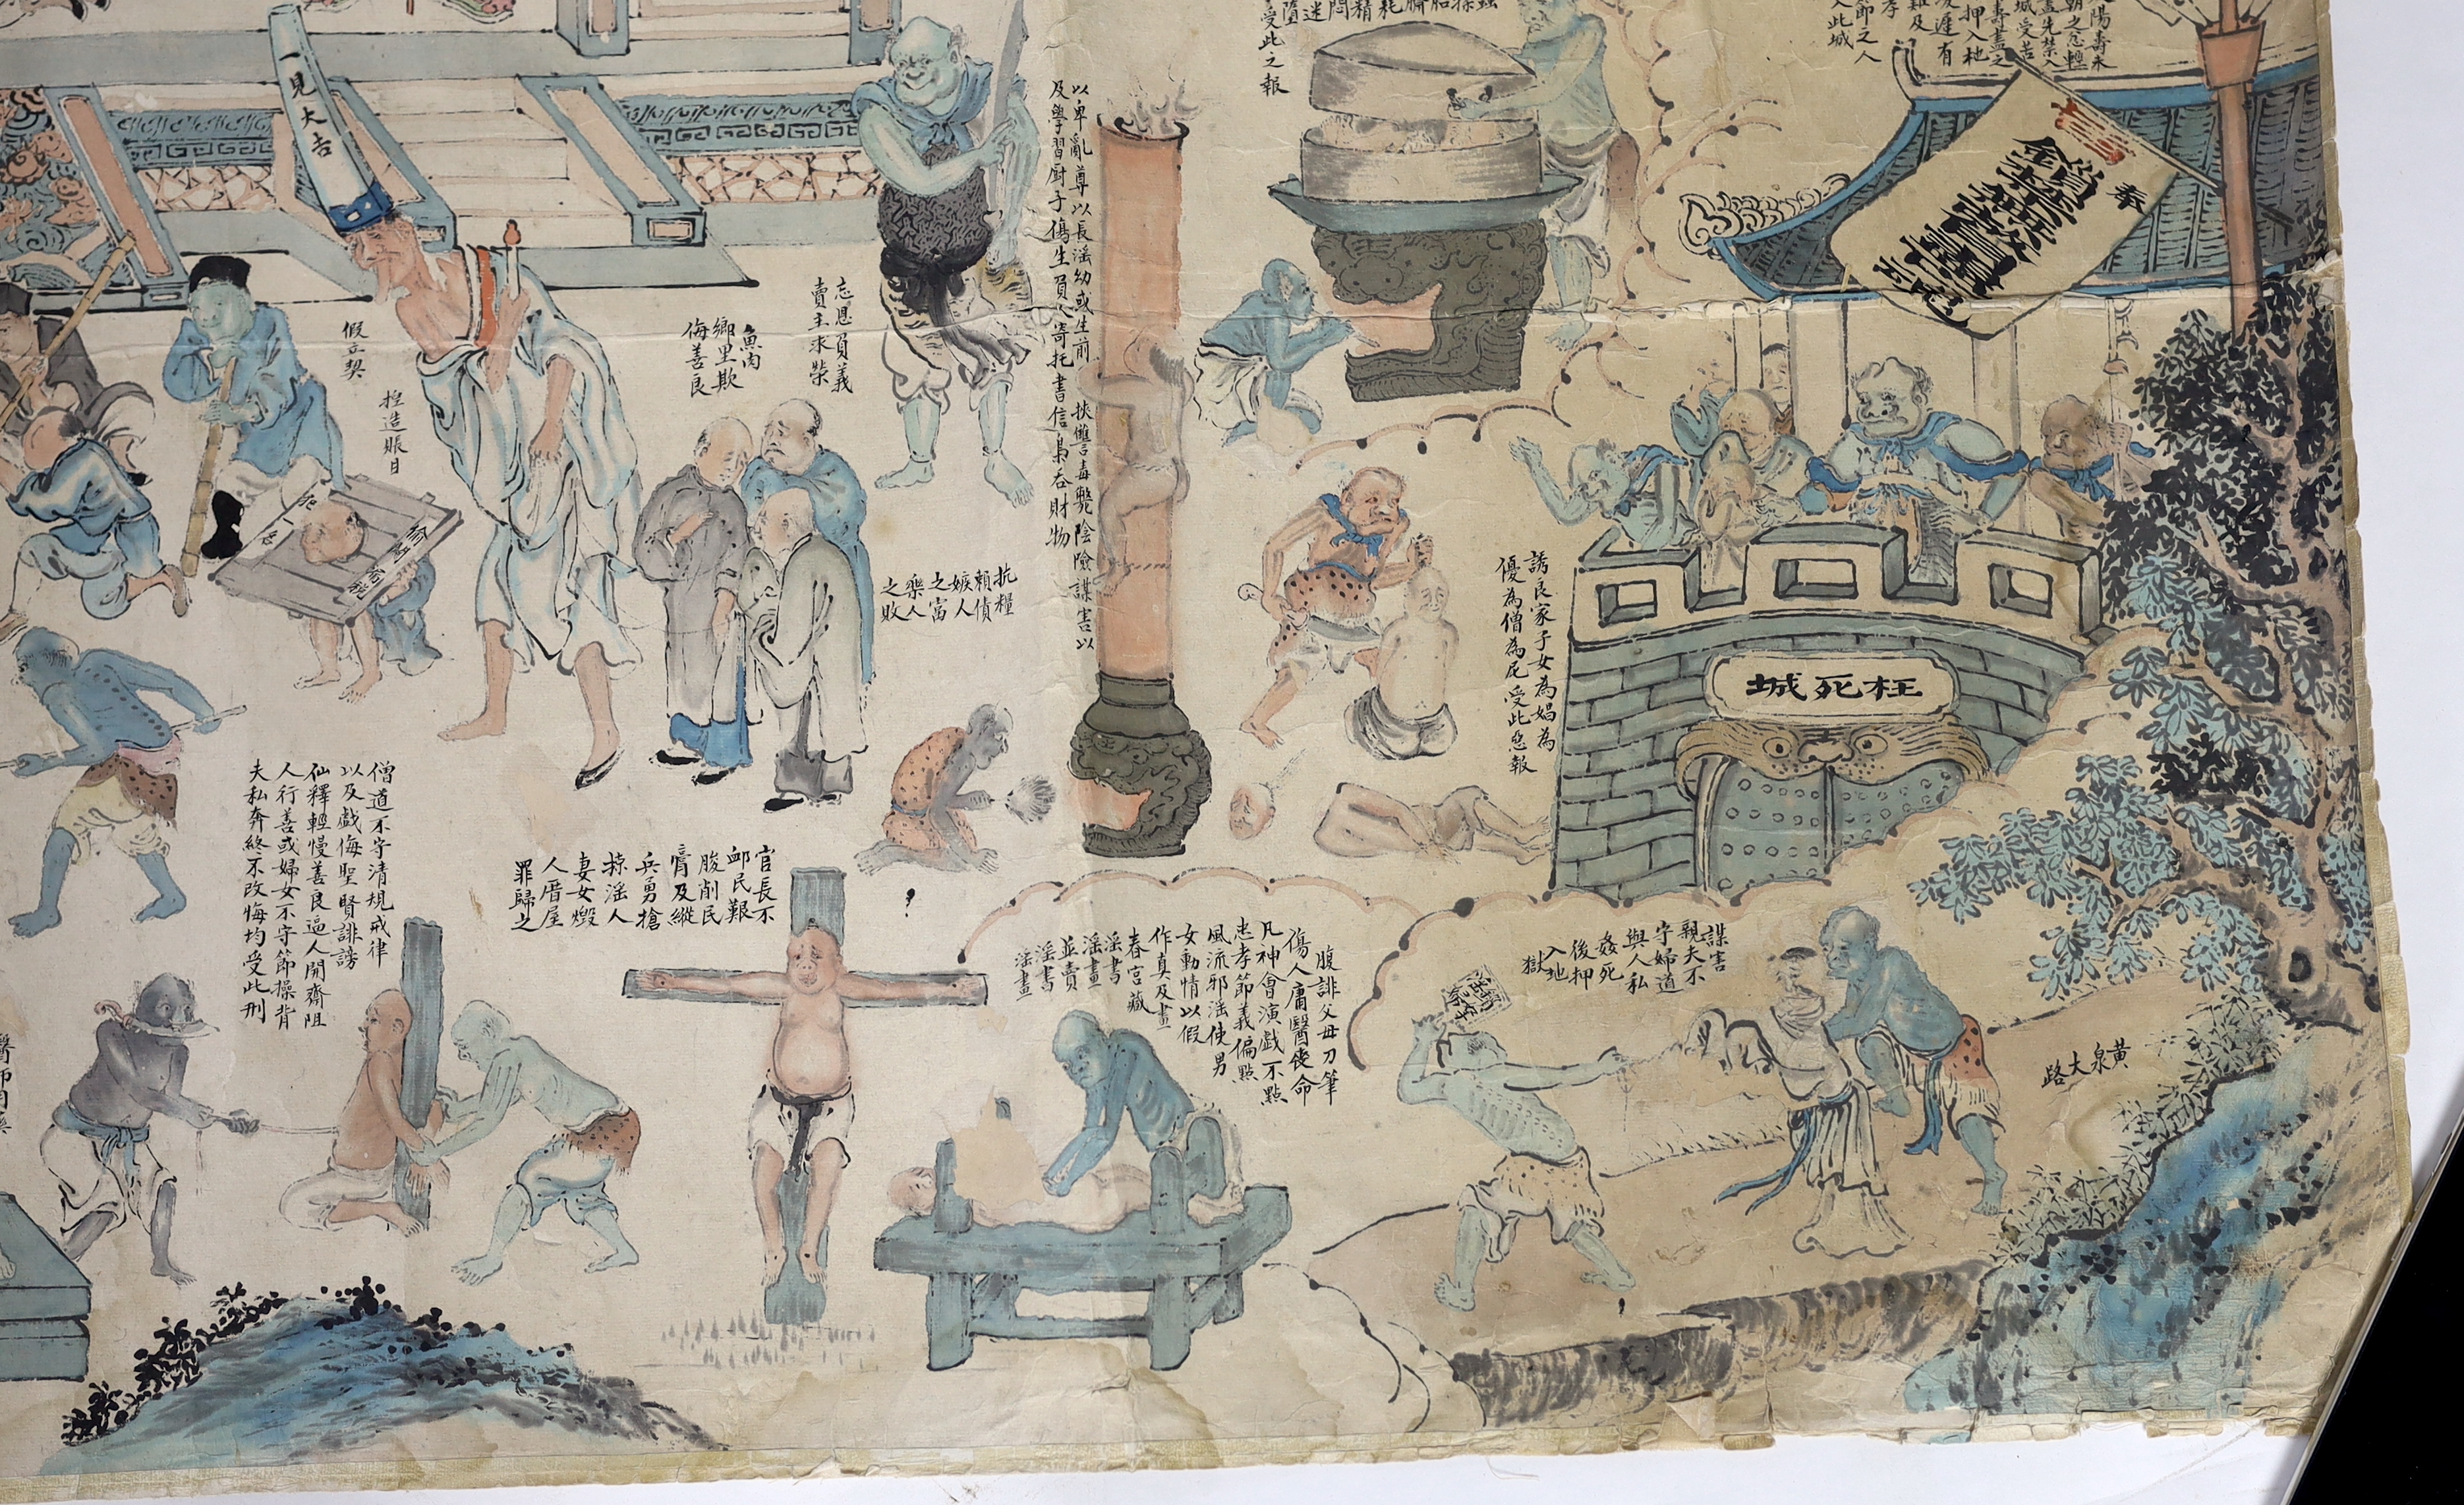 一見大吉
假立契
揑造賬目
魚肉
鄉里欺
侮善良
忘恩負義
賣主求榮
抗糧
賴債
嫉人
之富
樂人
之敗
以卑亂尊以長淫幼或生前
挾讐毒斃陰險謀害以
及學習厨子傷生負人寄托書信梟吞財物
受此之報
奉
誘良家子女為娼為
優為僧為尼受此惡報
枉死城
僧道不守清規戒律
以及戲侮聖賢誹謗
仙釋輕慢善良逼人開齋阻
人行善或婦女不守節操背
夫私奔終不改悔均受此刑
官長不
卹民艱
朘削民
膏及縱
兵勇搶
掠淫人
妻女燬
人厝屋
罪歸之
腹誹父母刀筆
傷人庸醫喪命
凡神會演戲不點
忠孝節義偏點
風流邪淫使男
女動情以假
作真及畫
春宮藏
淫書
淫畫
並賣
淫書
淫畫
謀害
親夫不
守婦道
與人私
姦死
後押
入地
獄
黃泉大路